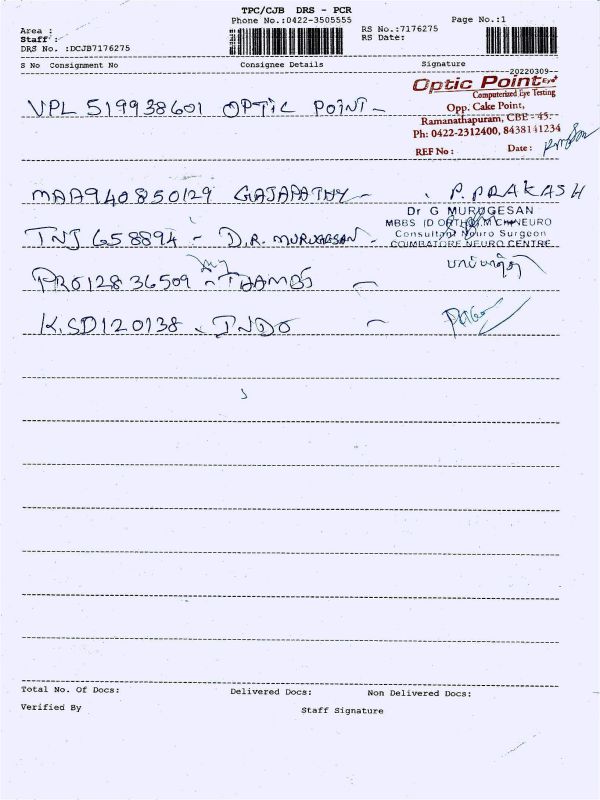 TPC/CJB DRS - PCR
Phone No.:0422-3505555
Page No.:1
Area :
Staff :
DRS No. :DCJB7176275
RS No.:7176275
RS Date:
S No Consignment No Consignee Details Signature
--20220309--
Optic Point Eye
Computerized Eye Testing
Opp. Cake Point,
Ramanathapuram, CBE - 45.
Ph: 0422-2312400, 8438141234
REF No : Date :
VPL 519938601 OPTiC POiNT -
MAA940850129 GAJAPATHY - P. PRAKASH
Dr G MURUGESAN
MBBS (D ORTHO) M CH NEURO
Consultant Neuro Surgeon
COIMBATORE NEURO CENTRE
TNJ 658894 - D.R. MURUGESAN -
PRO12836509 -
K.SD120138 - INDO -
Total No. Of Docs: Delivered Docs: Non Delivered Docs:
Verified By Staff Signature